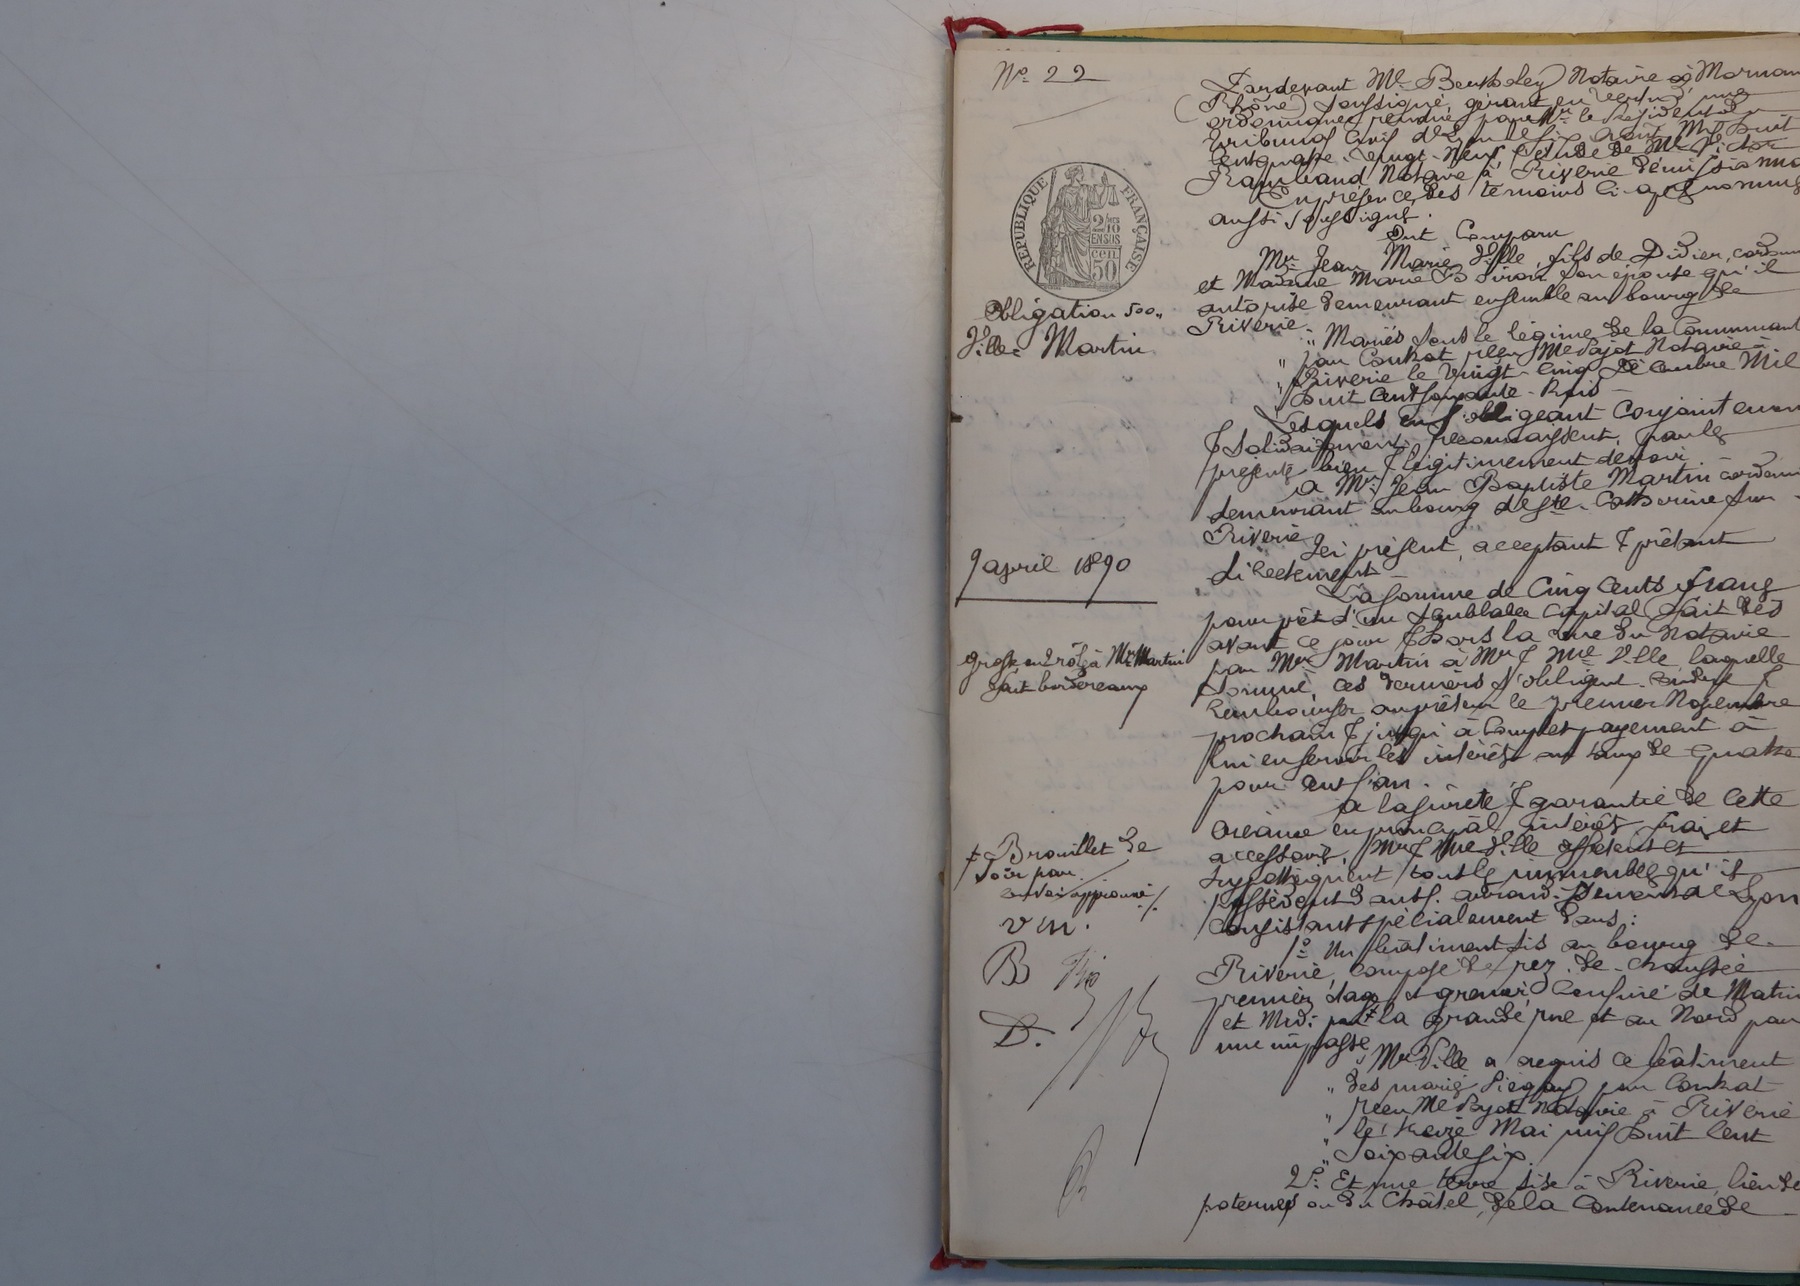 Nº 22
RÉPUBLIQUE FRANÇAISE
2/10 EN SUS
50 cen
Obligation 500,,
Ville = Martin
9 avril 1890
grosse en 2 rôles à Mr Martin
fait bordereaux
+ Brouillet de
soir par
v m.
B
D.
Pardevant Me Bertheley Notaire à Mornan
(Rhône) soussigné, gérant en vertu d'une
ordonnance rendue par Mr le Président du
Tribunal Civil de Lyon le six août Mil huit
Cent quatre-vingt-neuf, l'étude de Me Victor
Raymbaud Notaire à Riverie démissionna
En présence des témoins ci-après nommés
aussi soussignés.
Ont Comparu
Mr Jean Marie Ville, fils de Didier, cordonn
et Madame Marie son épouse qu'il
autorise demeurant ensemble au bourg de
Riverie.
,, Mariés sous le régime de la Communaut
,, par Contrat reçu Me Pajot Notaire à
,, Riverie le vingt-cinq Décembre Mil
,, huit Cent soixante-trois
Lesquels en s'obligeant Conjointemen
& solidairement, reconnaissent, par les
présentes bien & légitimement devoir
à Mr Jean Baptiste Martin cordonn
demeurant au bourg de Ste-Catherine sur
Riverie
Ici présent, acceptant & prêtant
directement
La somme de Cinq Cents francs
pour prêt d'un semblable Capital fait dès
avant ce jour & hors la vue du Notaire
par Mr Martin à Mr & Me Ville, laquelle
somme, ces derniers s'obligent
rembourser au prêteur le premier Novembre
prochain & jusqu'à Complet payement à
lui en servir les intérêts au taux de quatre
pour cent l'an.
A la sûreté & garantie de Cette
Créance en principal, intérêts, frais et
accessoires, Mr & Me Ville affectent et
hypothèquent tous les immeubles qu'ils
possèdent dans l'arrondissement de Lyon
Consistant spécialement dans :
1º Un bâtiment sis au bourg de
Riverie, composé de rez-de-chaussée
premier étage & grenier, Confiné de Matin
et Midi par + la grande rue et au Nord par
une impasse
,, Mr Ville a acquis ce bâtiment
,, des mariés par Contrat
,, reçu Me Pajot Notaire à Riverie
,, le treize Mai mil huit Cent
,, soixante six.
2º Et une terre sise à Riverie, lieu de
ou du Châtel, de la Contenance de